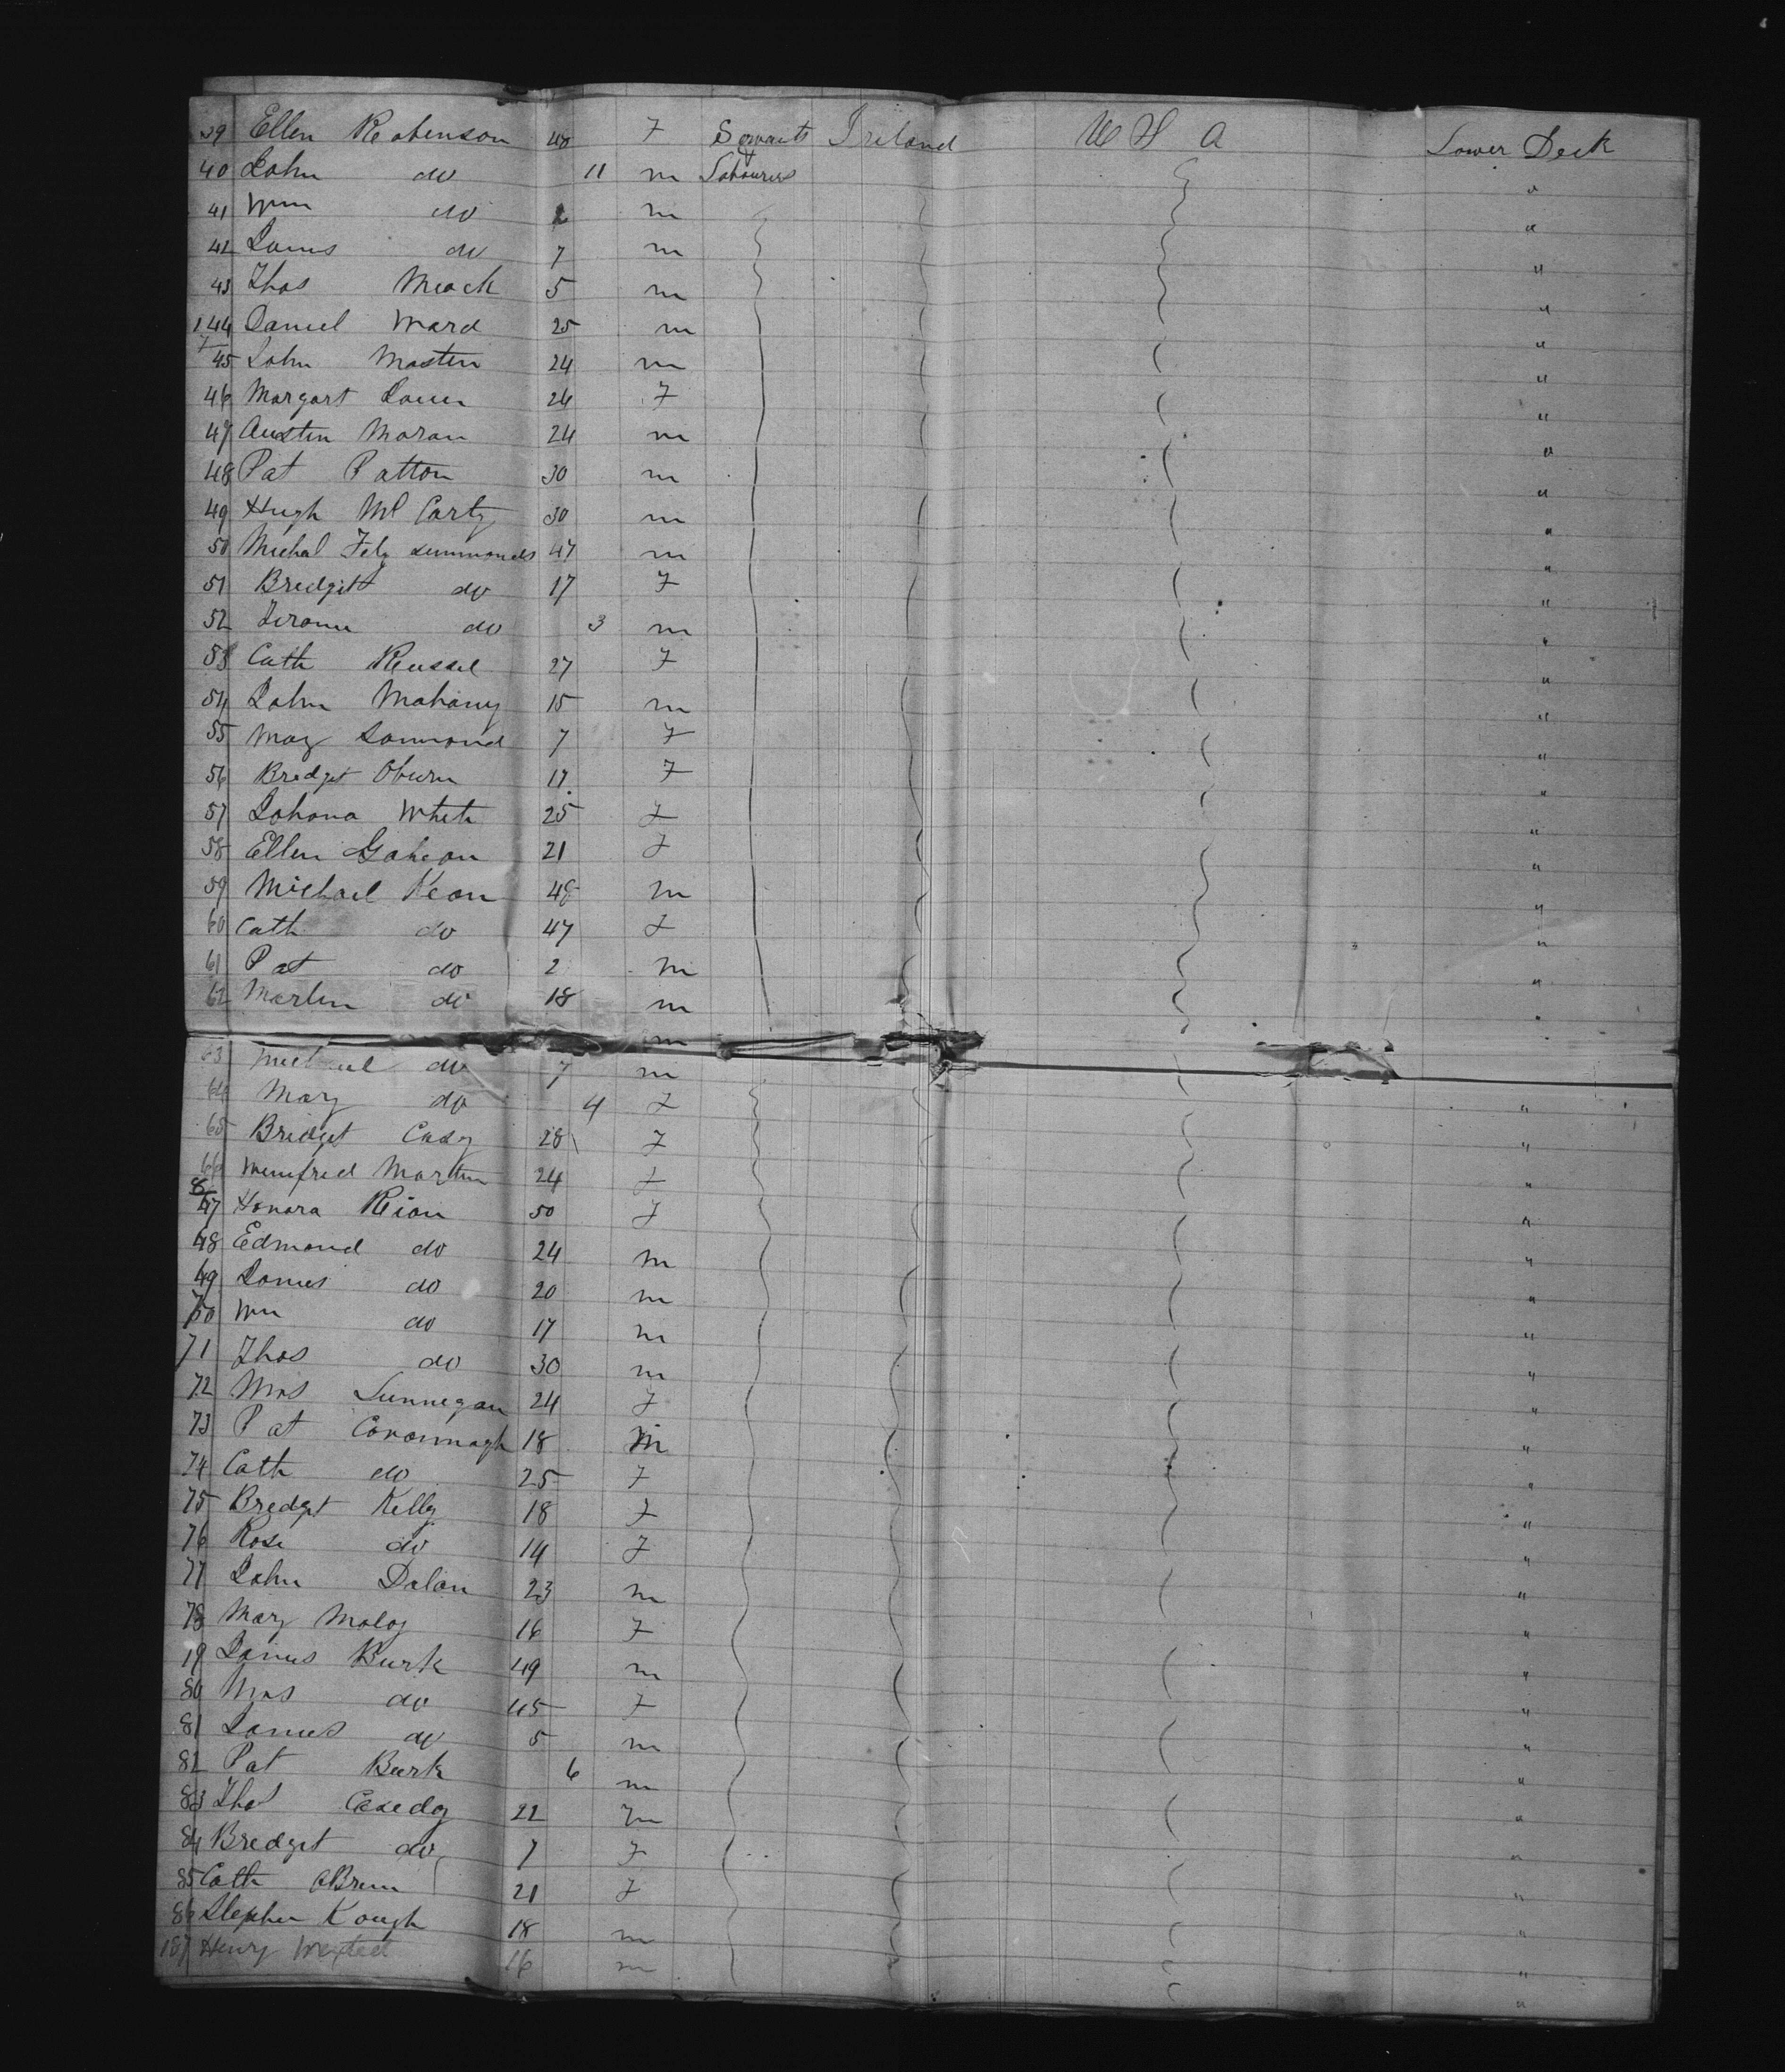 39 Ellen Robenson 40 F Servants Ireland U S A Lower Deck
40 John do 11 m Labourers "
41 Wm do m "
42 James do 7 m "
43 Thos Meack 5 m "
144 Daniel Ward 25 m "
45 John Masten 24 m "
46 Margart 24 F "
47 Austin Moran 24 m "
48 Pat Patton 30 m "
49 Hugh Mc Carty 30 m "
50 Michal Fitz summonds 47 m "
51 Bredgitt do 17 F "
52 do 3 m "
53 Cath Reussel 27 F "
54 John Mahony 15 m "
55 May Sammond 7 F "
56 Bredget Oburn 17 F "
57 Johana White 25 F "
58 Ellen Gahean 21 F "
59 Michael Kean 48 m "
60 Cath do 47 F "
61 Pat do 2 m "
62 Marten do 18 m "
m
63 Michael do 7 m
64 Mary do 4 F "
65 Bridget Casy 28 F "
66 Wenifred Marten 24 F "
8
67 Honora Rion 50 F "
68 Edmond do 24 m "
69 James do 20 m "
70 Wm do 17 m "
71 Thos do 30 m "
72 Mrs Lunnegan 24 F "
73 Pat Cavannagh 18 m "
74 Cath do 25 F "
75 Bredgt Kelly 18 F "
76 Rose do 14 F "
77 John Dolan 23 m "
78 Mary Maloy 16 F "
79 James Burk 49 m "
80 Mrs do 45 F "
81 James do 5 m "
82 Pat Burk 6 m "
83 Thos Casedy 22 m "
84 Bredget do 7 F "
85 Cath OBrien 21 F "
86 Stephen Kough 18 m "
187 Henry 16 m "